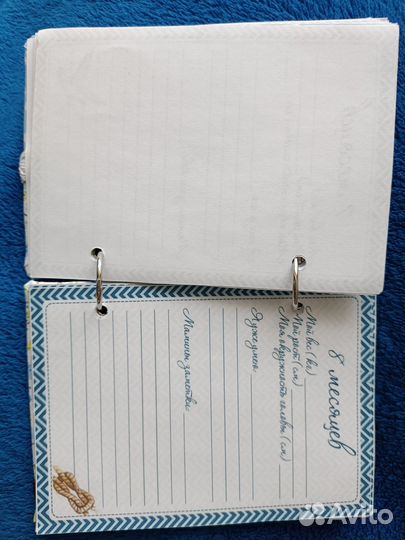 8 месяцев
Мой вес (кг)
Мой рост (см)
Моя окружность головы (см)
Я уже умею
Мамины заметки:
Avito